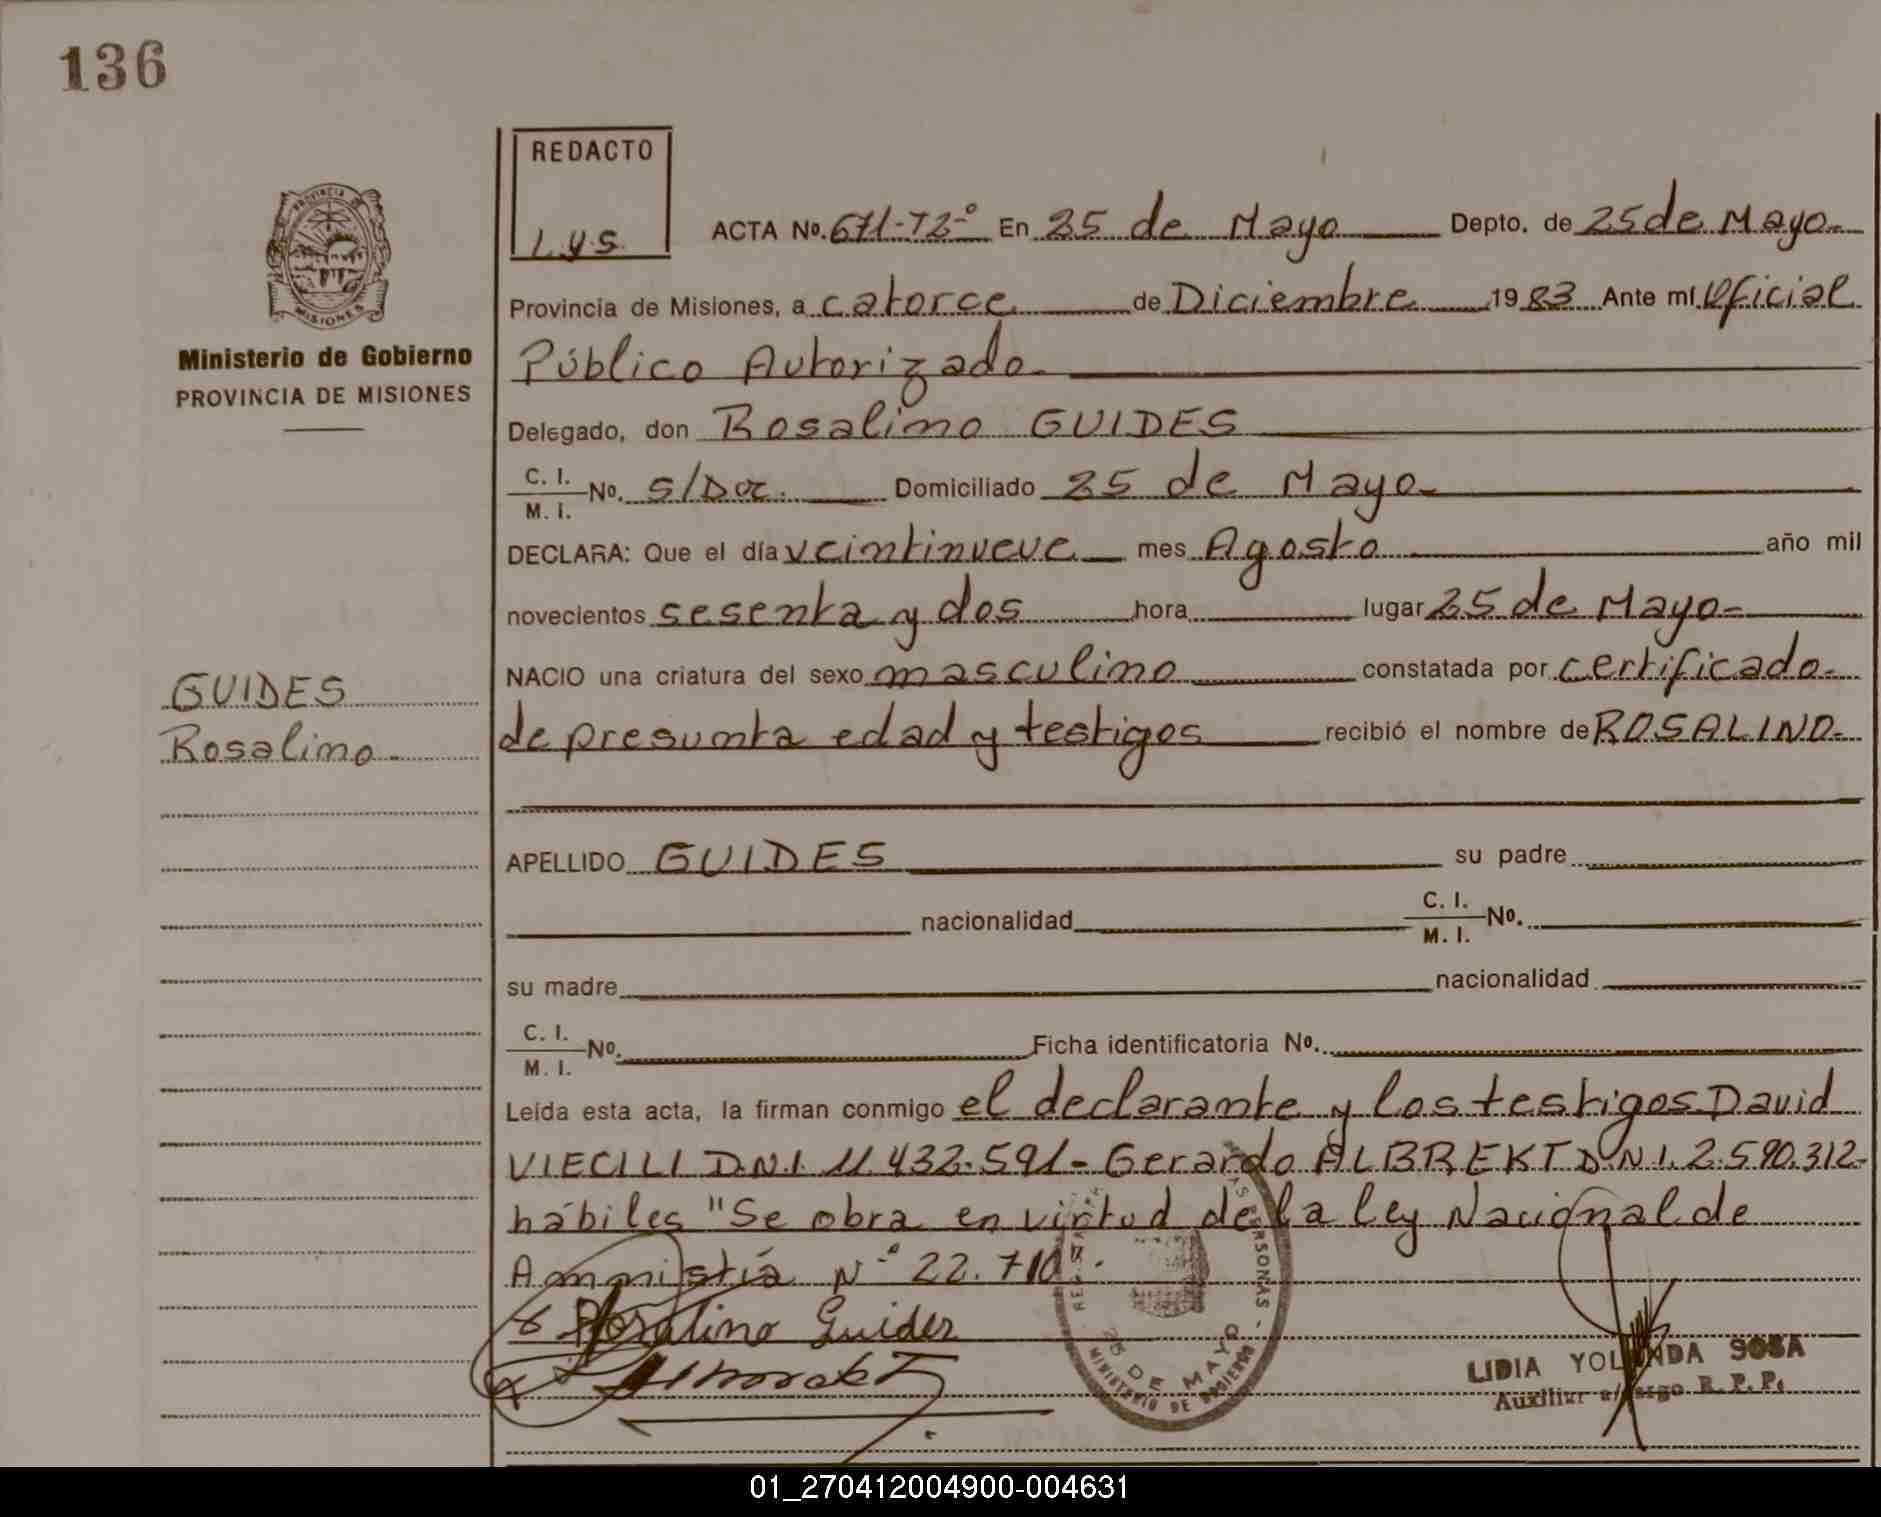 136
REDACTO
L.Y.S.
PROVINCIA DE
MISIONES
Ministerio de Gobierno
PROVINCIA DE MISIONES
ACTA Nº. 671-T2-º En 25 de Mayo Depto. de 25 de Mayo-
Provincia de Misiones, a catorce de Diciembre 1983 Ante mí Oficial
Público Autorizado-
Delegado, don Rosalino GUIDES
C. I.
M. I. Nº. S/Doc. Domiciliado 25 de Mayo-
DECLARA: Que el día veintinueve mes Agosto año mil
novecientos sesenta y dos hora lugar 25 de Mayo-
NACIO una criatura del sexo masculino constatada por certificado-
de presunta edad y testigos recibió el nombre de ROSALINO-
GUIDES
Rosalino-
APELLIDO GUIDES su padre
nacionalidad C. I.
M. I. Nº.
su madre nacionalidad
C. I.
M. I. Nº. Ficha identificatoria Nº.
Leída esta acta, la firman conmigo el declarante y los testigos David
VIECILI D.N.I. 11.432.591- Gerardo ALBREKT D.N.I. 2.590.312-
hábiles "Se obra en virtud de la ley Nacional de
Ammistía Nº 22.710".
Rosalino Guides
25 DE MAYO
MINISTERIO DE GOBIERNO
PERSONAS
LIDIA YOLANDA SOSA
Auxiliar a/cargo R. P. P.
01_270412004900-004631